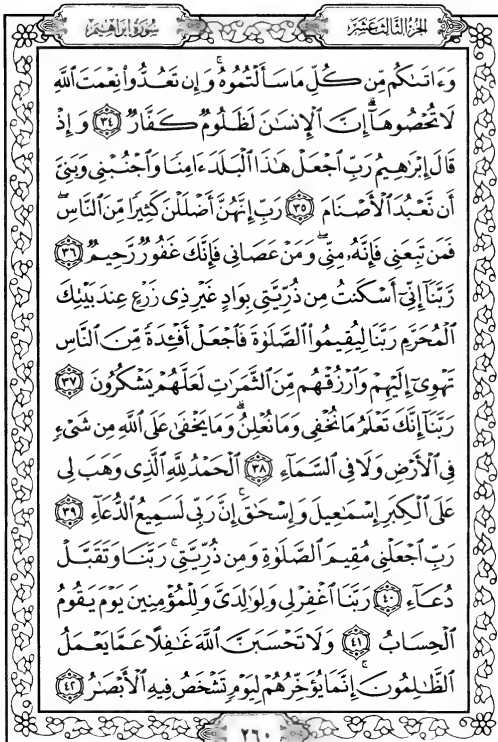 الجزء الثالث عشر سورة إبراهيم
وَءَاتَىٰكُم مِّن كُلِّ مَا سَأَلْتُمُوهُ ۚ وَإِن تَعُدُّوا۟ نِعْمَتَ ٱللَّهِ
لَا تُحْصُوهَآ ۗ إِنَّ ٱلْإِنسَـٰنَ لَظَلُومٌ كَفَّارٌ ٣٤ وَإِذْ
قَالَ إِبْرَٰهِيمُ رَبِّ ٱجْعَلْ هَـٰذَا ٱلْبَلَدَ ءَامِنًا وَٱجْنُبْنِى وَبَنِىَّ
أَن نَّعْبُدَ ٱلْأَصْنَامَ ٣٥ رَبِّ إِنَّهُنَّ أَضْلَلْنَ كَثِيرًا مِّنَ ٱلنَّاسِ ۖ
فَمَن تَبِعَنِى فَإِنَّهُۥ مِنِّى ۖ وَمَنْ عَصَانِى فَإِنَّكَ غَفُورٌ رَّحِيمٌ ٣٦
رَّبَّنَآ إِنِّىٓ أَسْكَنتُ مِن ذُرِّيَّتِى بِوَادٍ غَيْرِ ذِى زَرْعٍ عِندَ بَيْتِكَ
ٱلْمُحَرَّمِ رَبَّنَا لِيُقِيمُوا۟ ٱلصَّلَوٰةَ فَٱجْعَلْ أَفْـِٔدَةً مِّنَ ٱلنَّاسِ
تَهْوِىٓ إِلَيْهِمْ وَٱرْزُقْهُم مِّنَ ٱلثَّمَرَٰتِ لَعَلَّهُمْ يَشْكُرُونَ ٣٧
رَبَّنَآ إِنَّكَ تَعْلَمُ مَا نُخْفِى وَمَا نُعْلِنُ ۗ وَمَا يَخْفَىٰ عَلَى ٱللَّهِ مِن شَىْءٍ
فِى ٱلْأَرْضِ وَلَا فِى ٱلسَّمَآءِ ٣٨ ٱلْحَمْدُ لِلَّهِ ٱلَّذِى وَهَبَ لِى
عَلَى ٱلْكِبَرِ إِسْمَـٰعِيلَ وَإِسْحَـٰقَ ۚ إِنَّ رَبِّى لَسَمِيعُ ٱلدُّعَآءِ ٣٩
رَبِّ ٱجْعَلْنِى مُقِيمَ ٱلصَّلَوٰةِ وَمِن ذُرِّيَّتِى ۚ رَبَّنَا وَتَقَبَّلْ
دُعَآءِ ٤٠ رَبَّنَا ٱغْفِرْ لِى وَلِوَٰلِدَىَّ وَلِلْمُؤْمِنِينَ يَوْمَ يَقُومُ
ٱلْحِسَابُ ٤١ وَلَا تَحْسَبَنَّ ٱللَّهَ غَـٰفِلًا عَمَّا يَعْمَلُ
ٱلظَّـٰلِمُونَ ۚ إِنَّمَا يُؤَخِّرُهُمْ لِيَوْمٍ تَشْخَصُ فِيهِ ٱلْأَبْصَـٰرُ ٤٢
٢٦٠